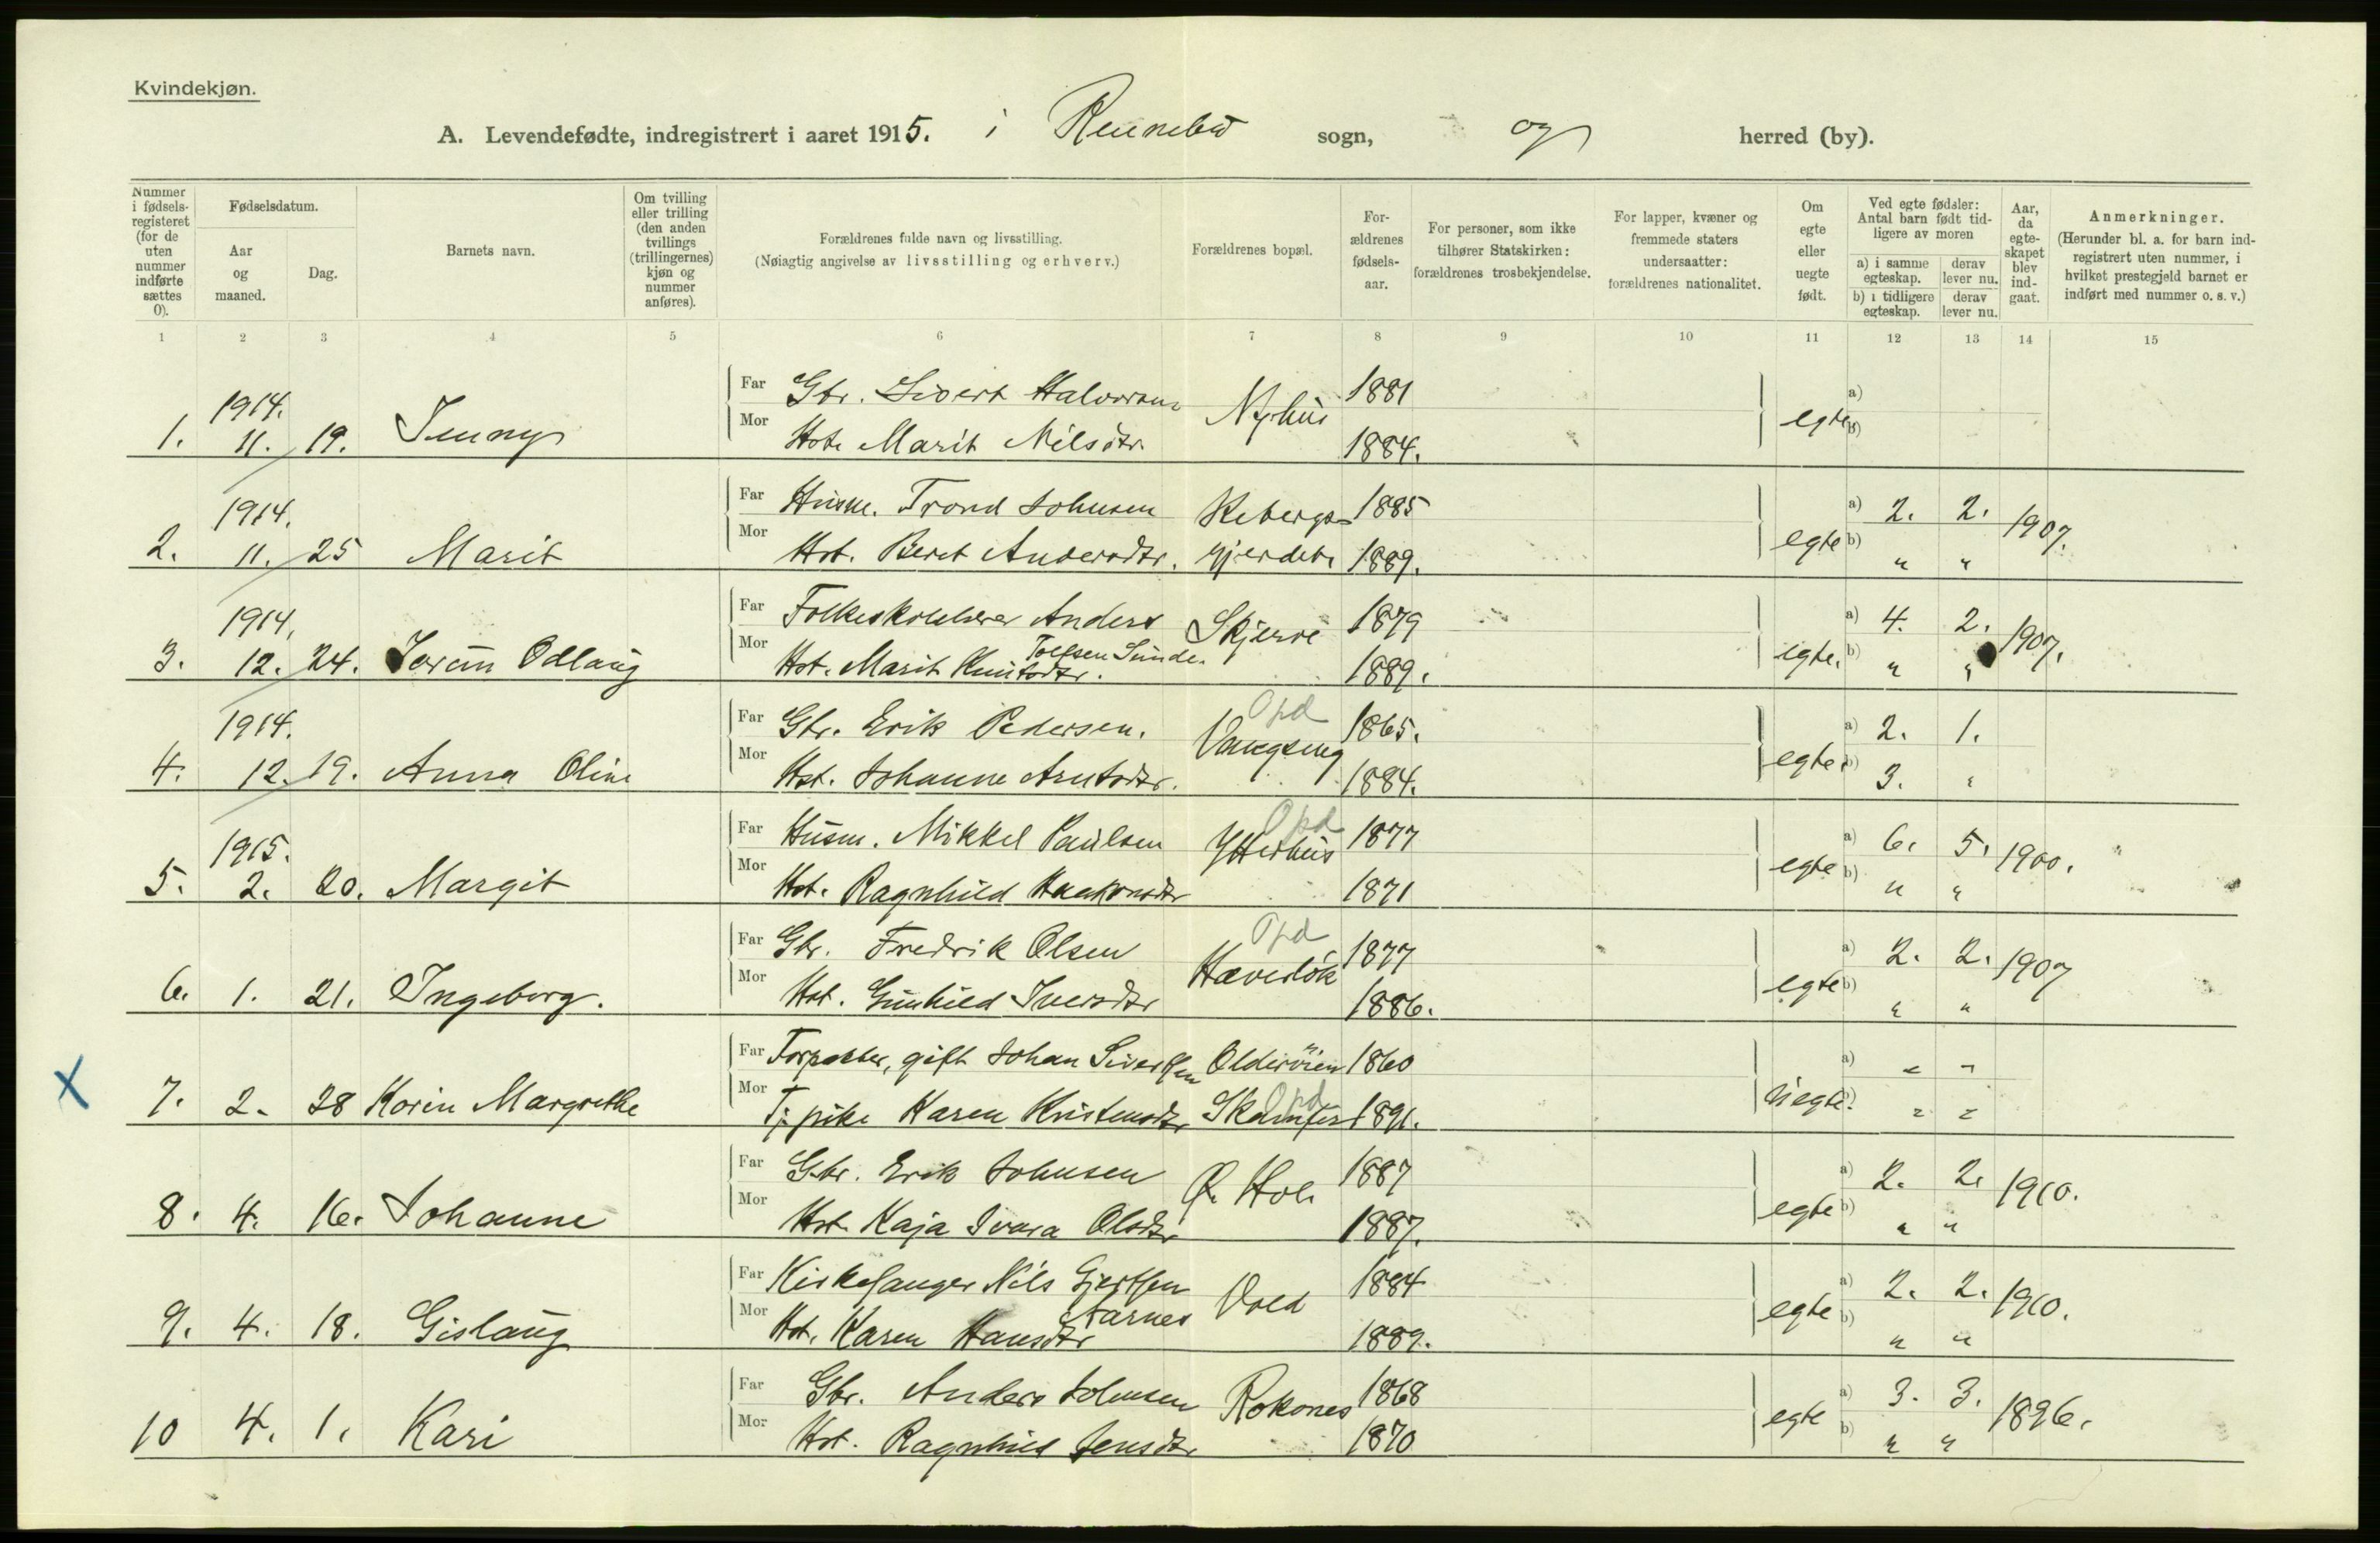 Kvindekjøn.
A. Levendefødte, indregistrert i aaret 1915. i Rennebu sogn, og herred (by).
Nummer i fødselsregisteret (for de uten nummer indførte sættes 0).
Fødselsdatum.
Aar og maaned.
Dag.
Barnets navn.
Om tvilling eller trilling (den anden tvillings (trillingernes) kjøn og nummer anføres).
Forældrenes fulde navn og livsstilling.
(Nøiagtig angivelse av livsstilling og erhverv.)
Forældrenes bopæl.
Forældrenes fødselsaar.
For personer, som ikke tilhører Statskirken: forældrenes trosbekjendelse.
For lapper, kvæner og fremmede staters undersaatter: forældrenes nationalitet.
Om egte eller uegte født.
Ved egte fødsler: Antal barn født tidligere av moren
a) i samme egteskap. derav lever nu.
b) i tidligere egteskap. derav lever nu.
Aar, da egteskapet blev indgaat.
Anmerkninger.
(Herunder bl. a. for barn indregistrert uten nummer, i hvilket prestegjeld barnet er indført med nummer o. s. v.)
1 2 3 4 5 6 7 8 9 10 11 12 13 14 15
1914.
Far Gbr. Sivert Halvorsen Nyhus 1881 a)
1. 11. 19. Jenny Mor Hst. Marit Nilsdtr. 1884. egte b)
1914.
Far Husm. Trond Johnsen Skebergs- 1885 a) 2. 2. 1907.
2. 11. 25 Marit Mor Hst. Beret Andersdtr. gjerdet 1889. egte b) " "
1914.
Far Folkeskolelærer Anders Tolfsen Sunde. Skjerve 1879 a) 4. 2. 1907.
3. 12. 24. Jorun Odlaug Mor Hst. Marit Knutsdtr. 1889. egte. b) " "
1914.
Far Gbr. Erik Pedersen. Vangseng Opd 1865. a) 2. 1.
4. 12. 19. Anna Oline Mor Hst. Johanne Arntsdtr. 1884. egte b) 3. "
1915.
Far Husm. Mikkel Paulsen Ytterhus Opd 1877 a) 6. 5. 1900. "
5. 2. 20. Margit Mor Hst. Ragnhild Haakonsdtr 1871 egte b) " "
Far Gbr. Fredrik Olsen Hæverløk Opd 1877 a) 2. 2. 1907
6. 1. 21. Ingeborg. Mor Hst. Gunhild Iversdtr 1886. egte b) " "
Far Forpakter, gift Johan Sivertsen Olderøien 1860 a) " "
X 7. 2. 28 Karin Margrethe Mor Tj. pike Karen Kristensdtr Skamfer Opd 1891. uegte. b) " "
Far Gbr. Erik Johnsen Ø. Hol. 1887 a) 2. 2. 1910.
8. 4. 16. Johanne Mor Hst. Kaja Ivara Olsdtr 1887. egte b) " "
Far Kirkesanger Nils Gjertsen Aarnes Vold 1884 a) 2. 2. 1910.
9. 4. 18. Gislaug Mor Hst. Karen Hansdtr 1889. egte b) " "
Far Gbr. Anders Johnsen Rokones 1868 a) 3. 3. 1896.
10 4. 1. Kari Mor Hst. Ragnhild Jensdtr 1870 egte b) " "